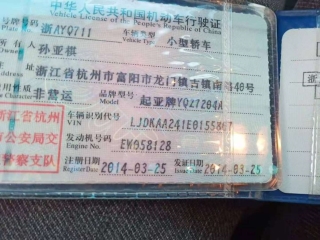 中华人民共和国机动车行驶证
Vehicle License of the People's Republic of China
浙AYQ711 车辆类型 Vehicle Type 小型轿车
所有人 孙亚祺
浙江省杭州市富阳市龙门镇吉镇南路40号
非营运 品牌型号 Model 起亚牌YQZ7204A
浙江省杭州
市公安局交
警察支队
车辆识别代号 VIN LJDKAA241E0155867
发动机号码 Engine No. EW058128
注册日期 Register Date 2014-03-25 发证日期 Issue Date 2014-03-25